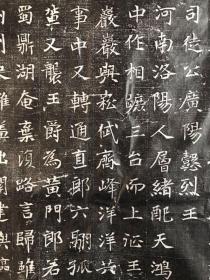 司徒公廣陽懿烈王
河南洛陽人層緒配天鴻
中作相三台而上征王
巖巖與崧岱齊峰洋洋共
事中又轉通直郎六翮孤
又襲王爵為黃門郎若
蜀鼎湖奄棄須路言歸雖